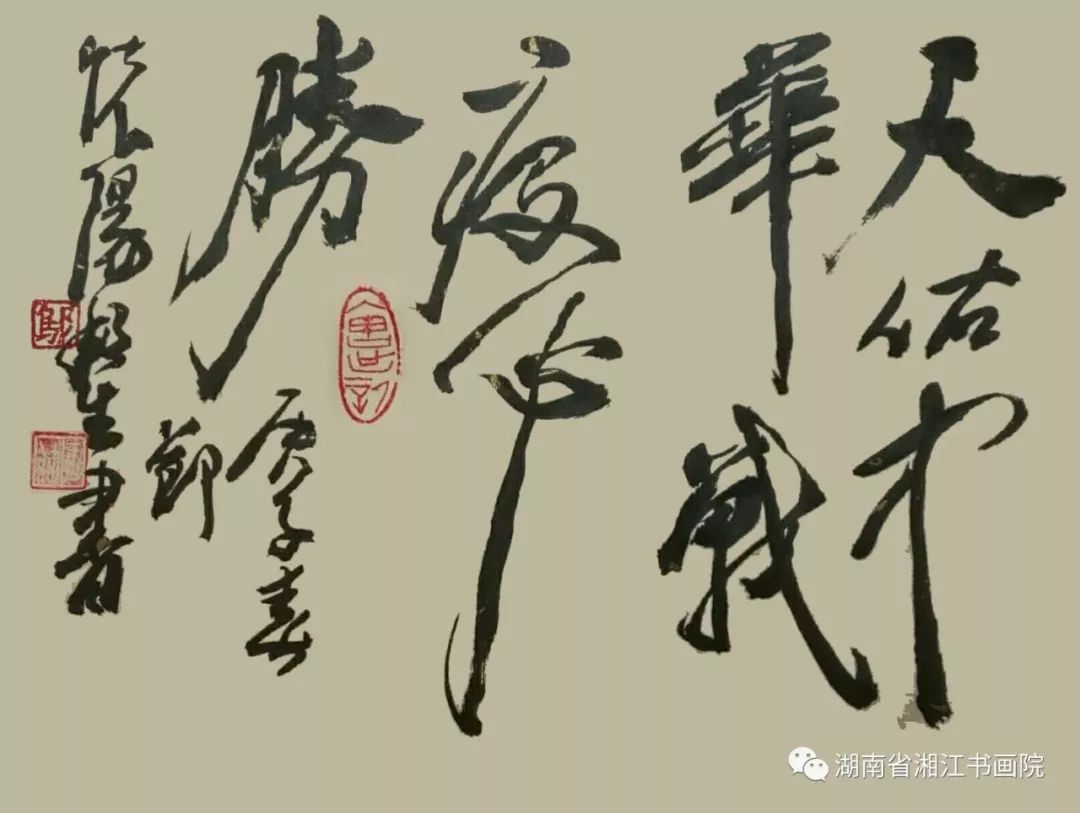 天佑中
華戰
疫必
勝
庚子春
陽書
湖南省湘江书画院